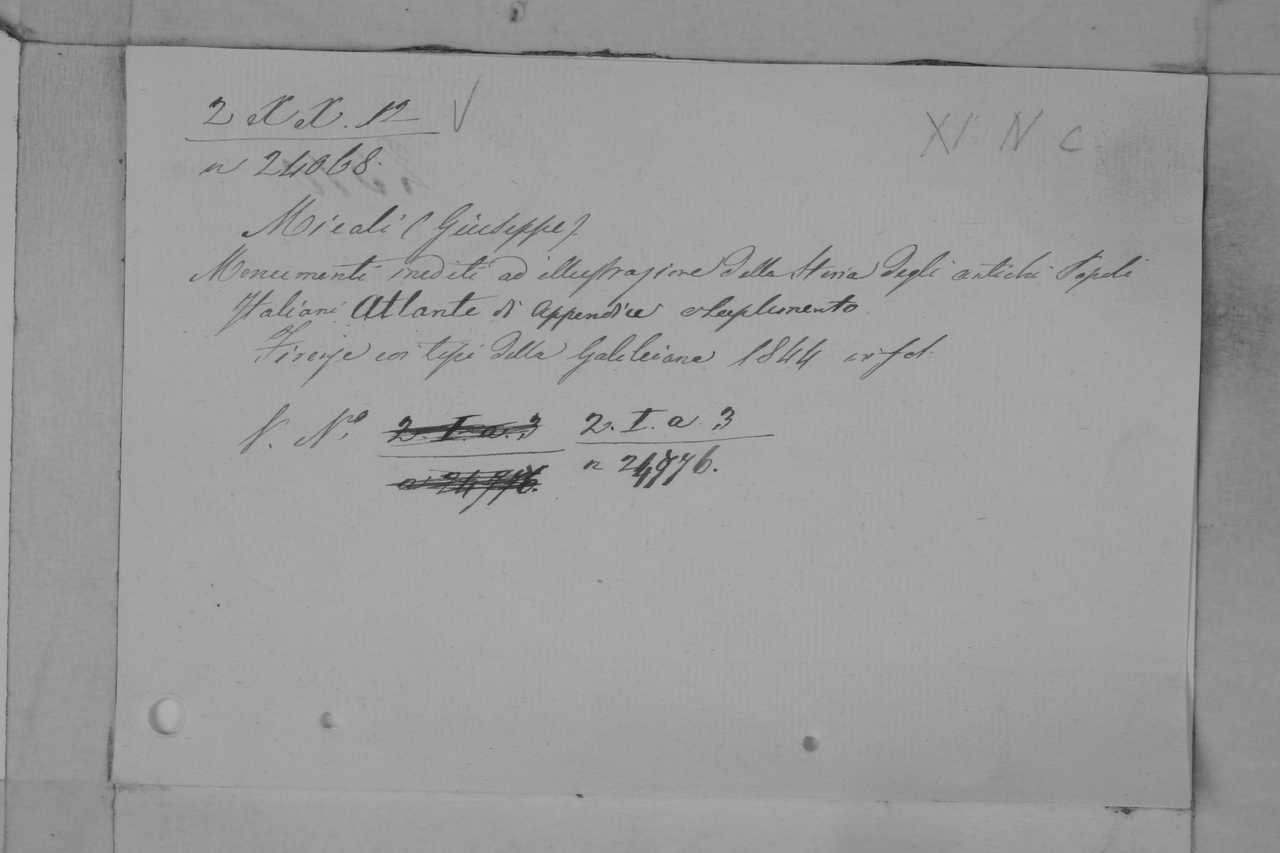 2 X X. 12 V
XI N C
n 24068.
Micali (Giuseppe)
Monumenti inediti ad illustrazione della Storia degli antichi Popoli
Italiani Atlante di Appendice e Suplemento
Firenze coi tipi della Galileiana 1844 in fol.
V. N.º 2. I. a. 3 2. I. a 3
n 24976. n 24976.